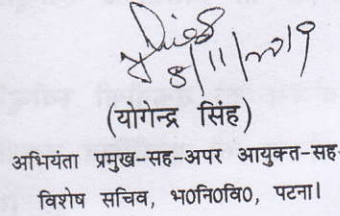 8/11/2019
(योगेन्द्र सिंह)
अभियंता प्रमुख-सह-अपर आयुक्त-सह-
विशेष सचिव, भ०नि०वि०, पटना।